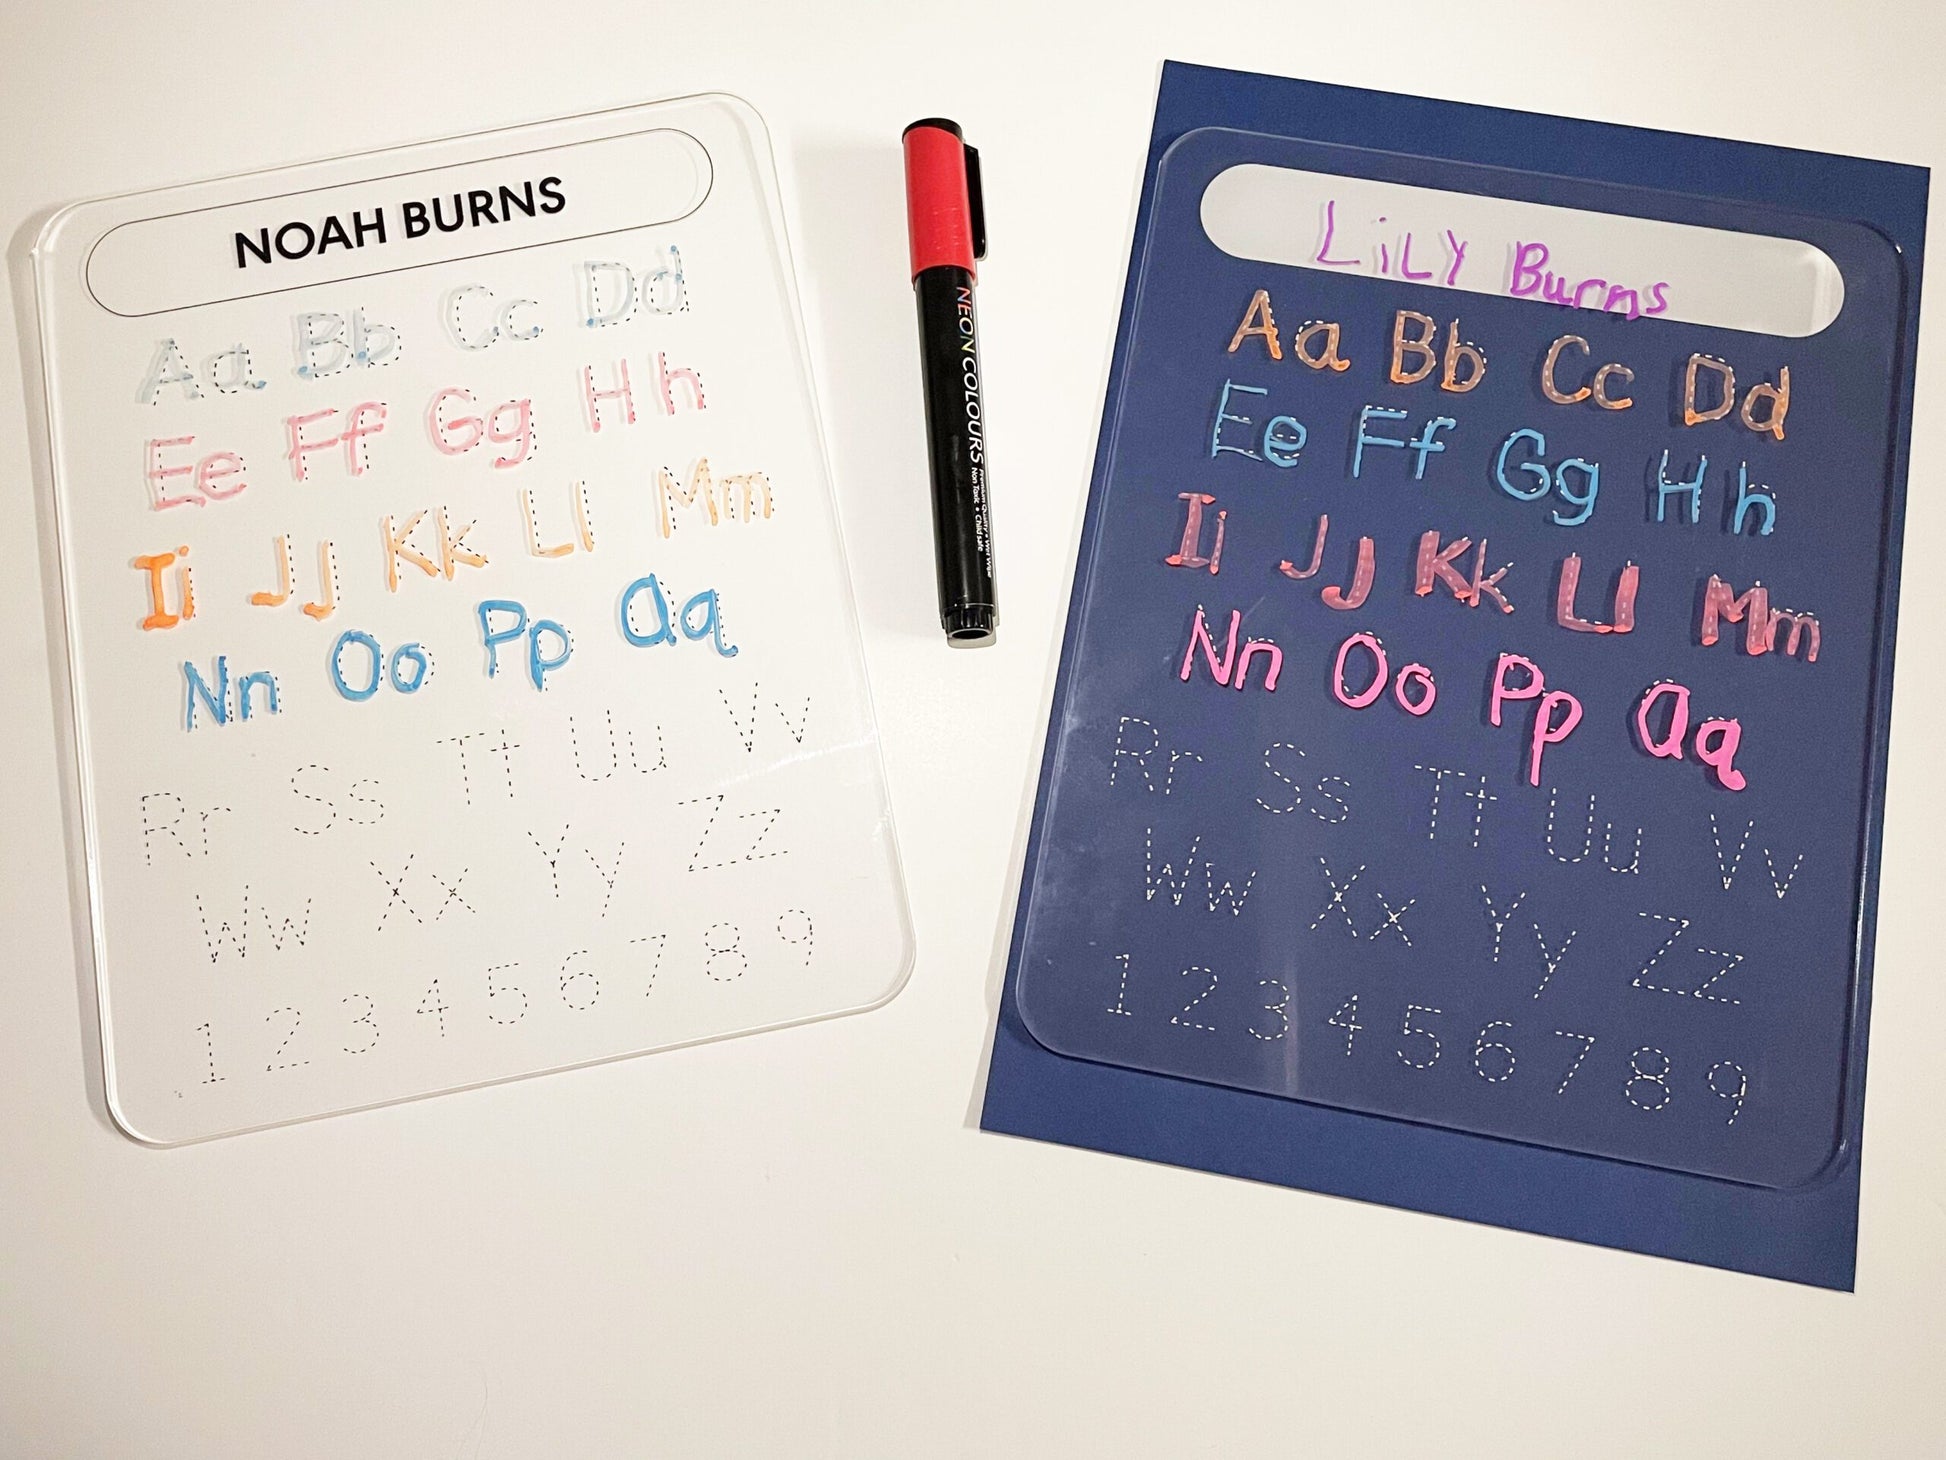 NOAH BURNS
Aa Bb Cc Dd
Ee Ff Gg Hh
Ii Jj Kk Ll Mm
Nn Oo Pp Qq
Rr Ss Tt Uu Vv
Ww Xx Yy Zz
1 2 3 4 5 6 7 8 9
NEON COLOURS
Premium Quality • Wet Wipe
Non Toxic • Child safe
LiLY Burns
Aa Bb Cc Dd
Ee Ff Gg Hh
Ii Jj Kk Ll Mm
Nn Oo Pp Qq
Rr Ss Tt Uu Vv
Ww Xx Yy Zz
1 2 3 4 5 6 7 8 9